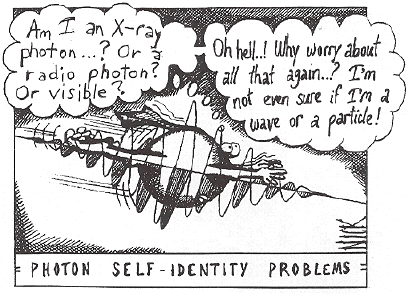 Am I an X-ray
photon...? Or a
radio photon?
Or visible?
Oh hell..! Why worry about
all that again...? I'm
not even sure if I'm a
wave or a particle!
= PHOTON SELF-IDENTITY PROBLEMS =